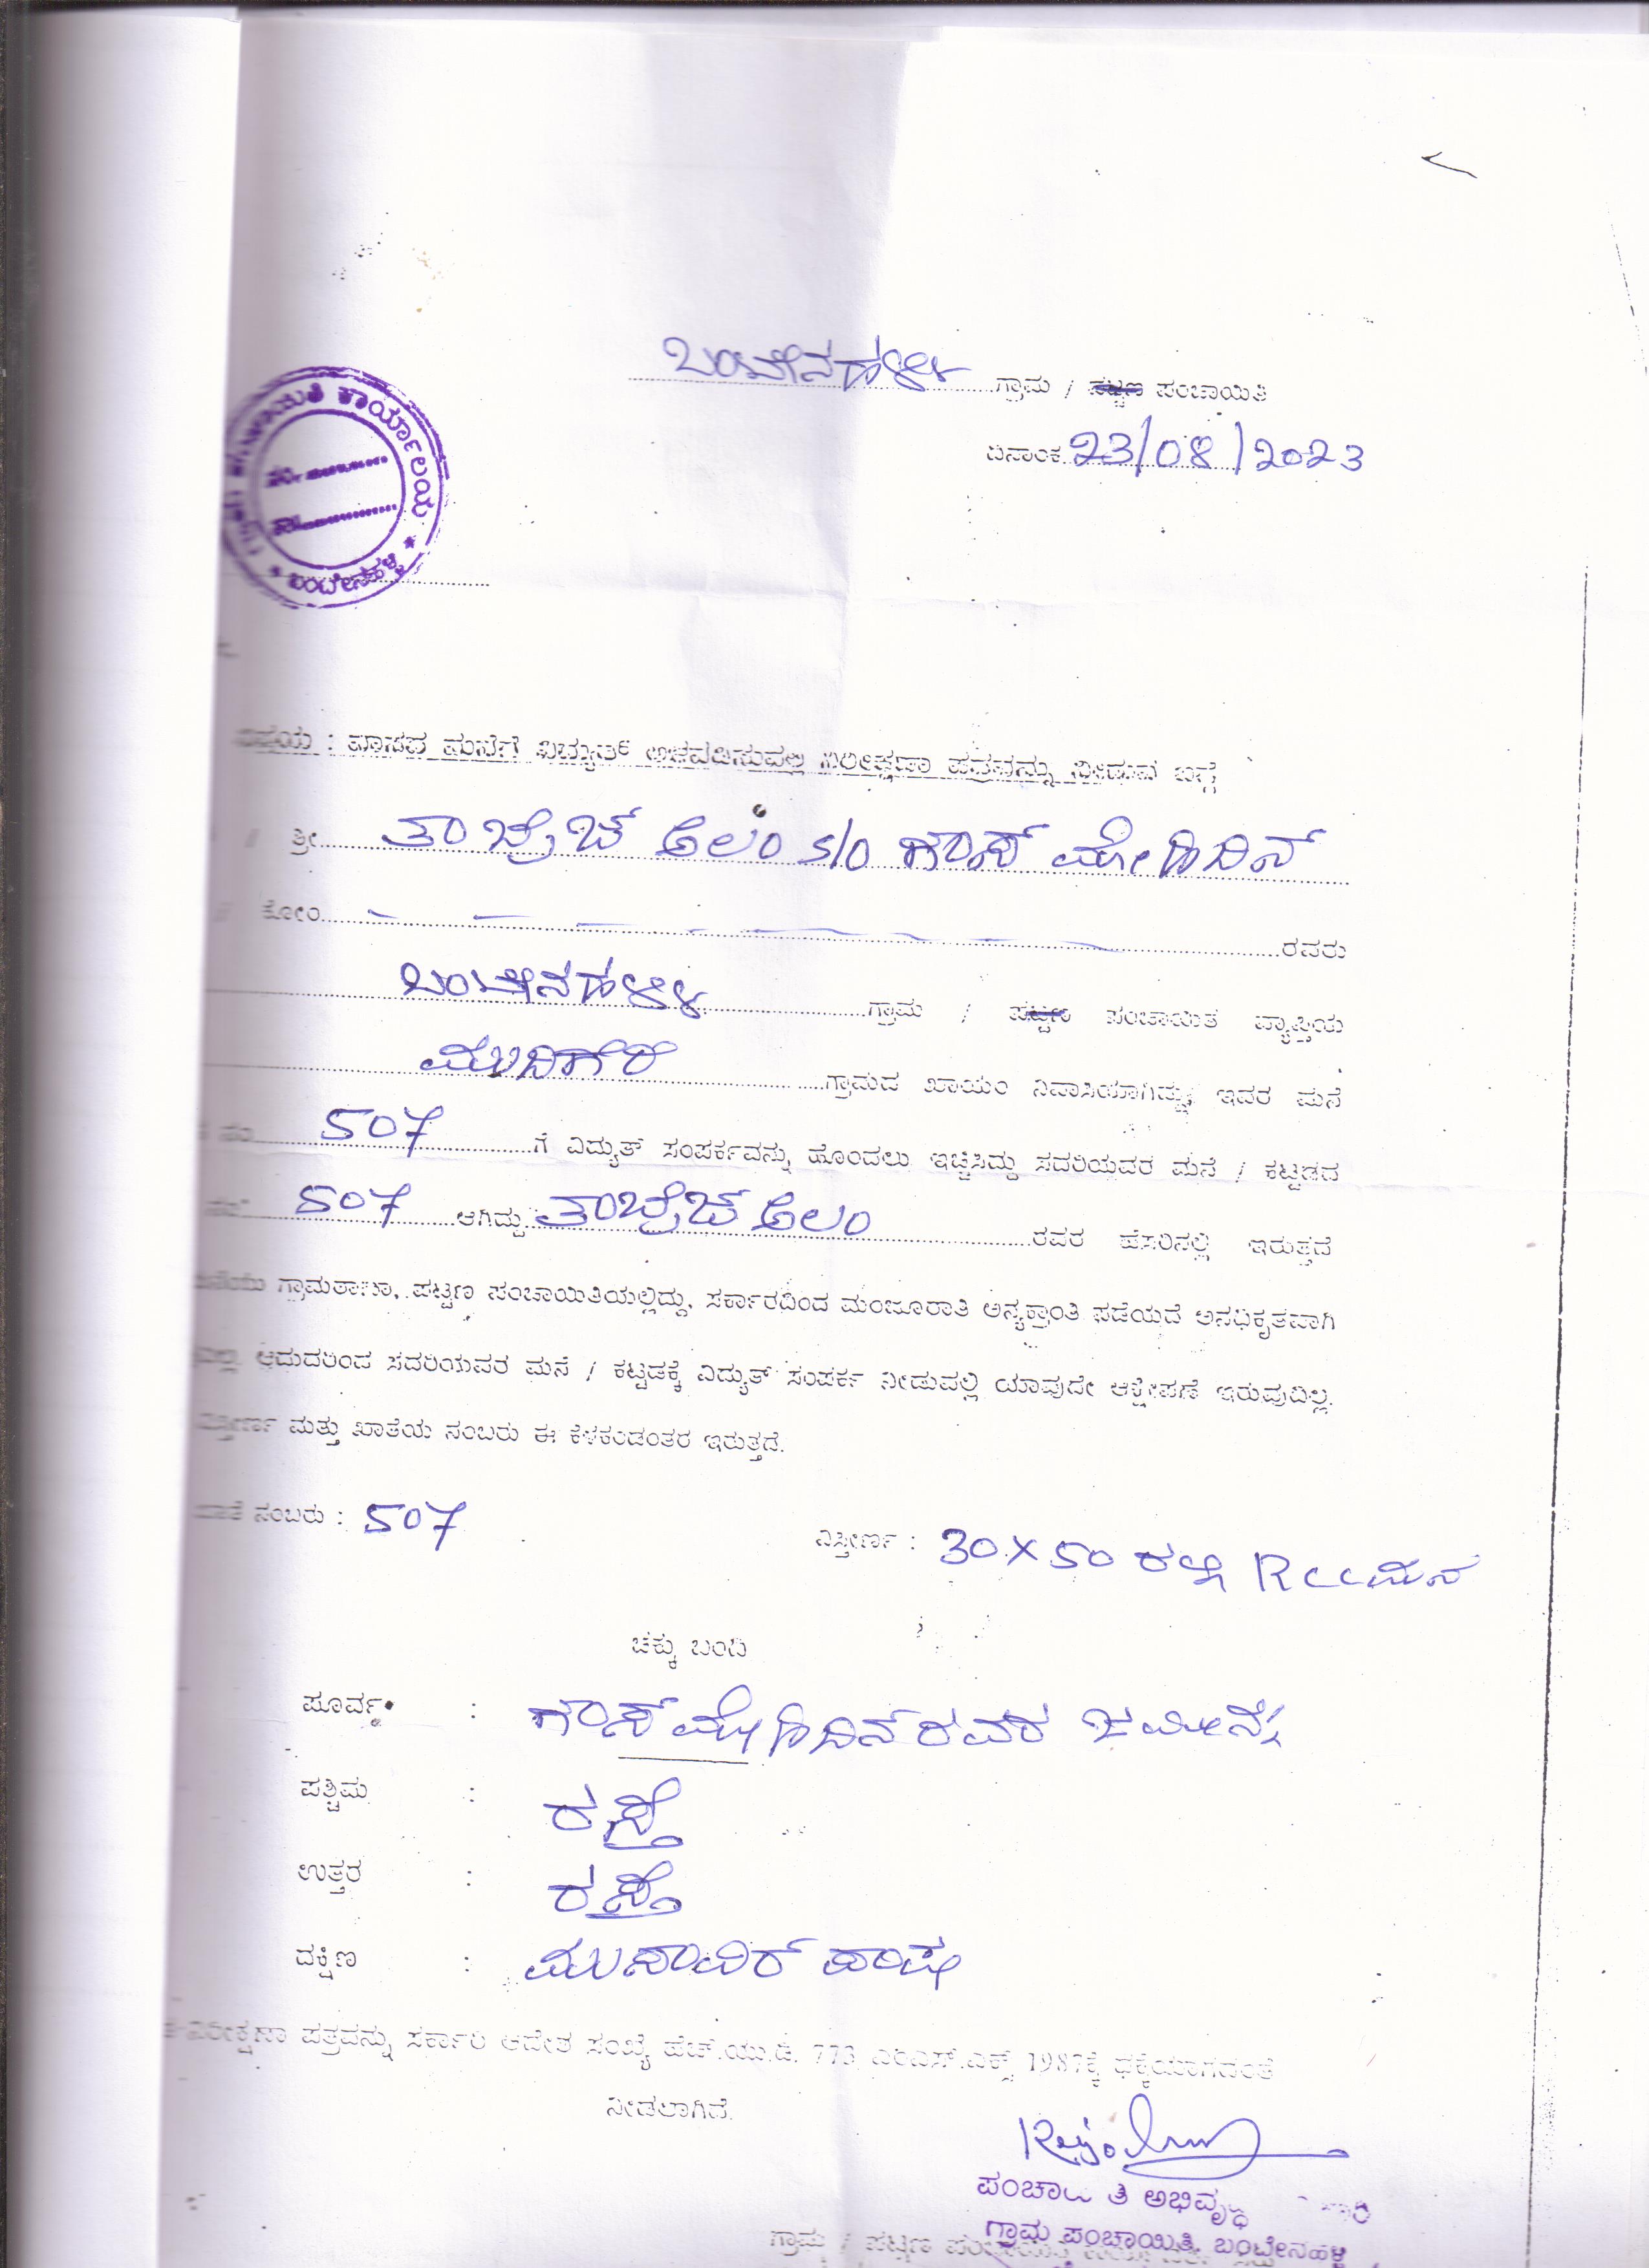 ಬಂಟೇನಹಳ್ಳಿ ಗ್ರಾಮ / ಪಟ್ಟಣ ಪಂಚಾಯಿತಿ
ದಿನಾಂಕ 23/08/2023
ಕಾರ್ಯಾಲಯ
ಬಂಟೇನಹಳ್ಳಿ
ವಿಷಯ : ವಾಸದ ಮನೆಗೆ ವಿದ್ಯುತ್ ಅಳವಡಿಸುವಲ್ಲಿ ನಿರೀಕ್ಷಣಾ ಪತ್ರವನ್ನು ನೀಡುವ ಬಗ್ಗೆ
ಶ್ರೀ ತಾಬ್ರೇಜ್ ಆಲಂ S/O ಗೌಸ್ ಮೋಹಿದಿನ್
ಕೋಂ ರವರು
ಬಂಟೇನಹಳ್ಳಿ ಗ್ರಾಮ / ಪಟ್ಟಣ ಪಂಚಾಯಿತಿ ವ್ಯಾಪ್ತಿಯ
ಮುದಿಗೆರೆ ಗ್ರಾಮದ ಖಾಯಂ ನಿವಾಸಿಯಾಗಿದ್ದು, ಇವರ ಮನೆ
ನಂ 507 ಗೆ ವಿದ್ಯುತ್ ಸಂಪರ್ಕವನ್ನು ಹೊಂದಲು ಇಚ್ಛಿಸಿದ್ದು ಸದರಿಯವರ ಮನೆ / ಕಟ್ಟಡದ
507 ಆಗಿದ್ದು ತಾಬ್ರೇಜ್ ಆಲಂ ರವರ ಹೆಸರಿನಲ್ಲಿ ಇರುತ್ತದೆ
ಗ್ರಾಮಠಾಣಾ, ಪಟ್ಟಣ ಪಂಚಾಯಿತಿಯಲ್ಲಿದ್ದು, ಸರ್ಕಾರದಿಂದ ಮಂಜೂರಾತಿ ಅನ್ಯಕ್ರಾಂತಿ ಪಡೆಯದೆ ಅನಧಿಕೃತವಾಗಿ
ಆದುದರಿಂದ ಸದರಿಯವರ ಮನೆ / ಕಟ್ಟಡಕ್ಕೆ ವಿದ್ಯುತ್ ಸಂಪರ್ಕ ನೀಡುವಲ್ಲಿ ಯಾವುದೇ ಆಕ್ಷೇಪಣೆ ಇರುವುದಿಲ್ಲ.
ವಿಸ್ತೀರ್ಣ ಮತ್ತು ಖಾತೆಯ ನಂಬರು ಈ ಕೆಳಕಂಡಂತರ ಇರುತ್ತದೆ.
ಖಾತೆ ನಂಬರು : 507
ವಿಸ್ತೀರ್ಣ : 30 X 50 ರಲ್ಲಿ RCC ಮನೆ
ಚಕ್ಕು ಬಂದಿ
ಪೂರ್ವ : ಗೌಸ್ ಮೋಹಿದಿನ್ ರವರ ಜಮೀನು
ಪಶ್ಚಿಮ : ರಸ್ತೆ
ಉತ್ತರ : ರಸ್ತೆ
ದಕ್ಷಿಣ : ಮುಸಾವಿರ್ ಪಾಷ
ನಿರೀಕ್ಷಣಾ ಪತ್ರವನ್ನು ಸರ್ಕಾರಿ ಆದೇಶ ಸಂಖ್ಯೆ ಹೆಚ್.ಯು.ಡಿ. 773 ಎಂಎಸ್.ಎಕ್ಸ್ 1987ಕ್ಕೆ ಧಕ್ಕೆಯಾಗದಂತೆ
ನೀಡಲಾಗಿದೆ.
ಪಂಚಾಯಿತಿ ಅಭಿವೃದ್ಧಿ
ಗ್ರಾಮ ಪಂಚಾಯಿತಿ, ಬಂಟೇನಹಳ್ಳಿ
ಗ್ರಾಮ / ಪಟ್ಟಣ